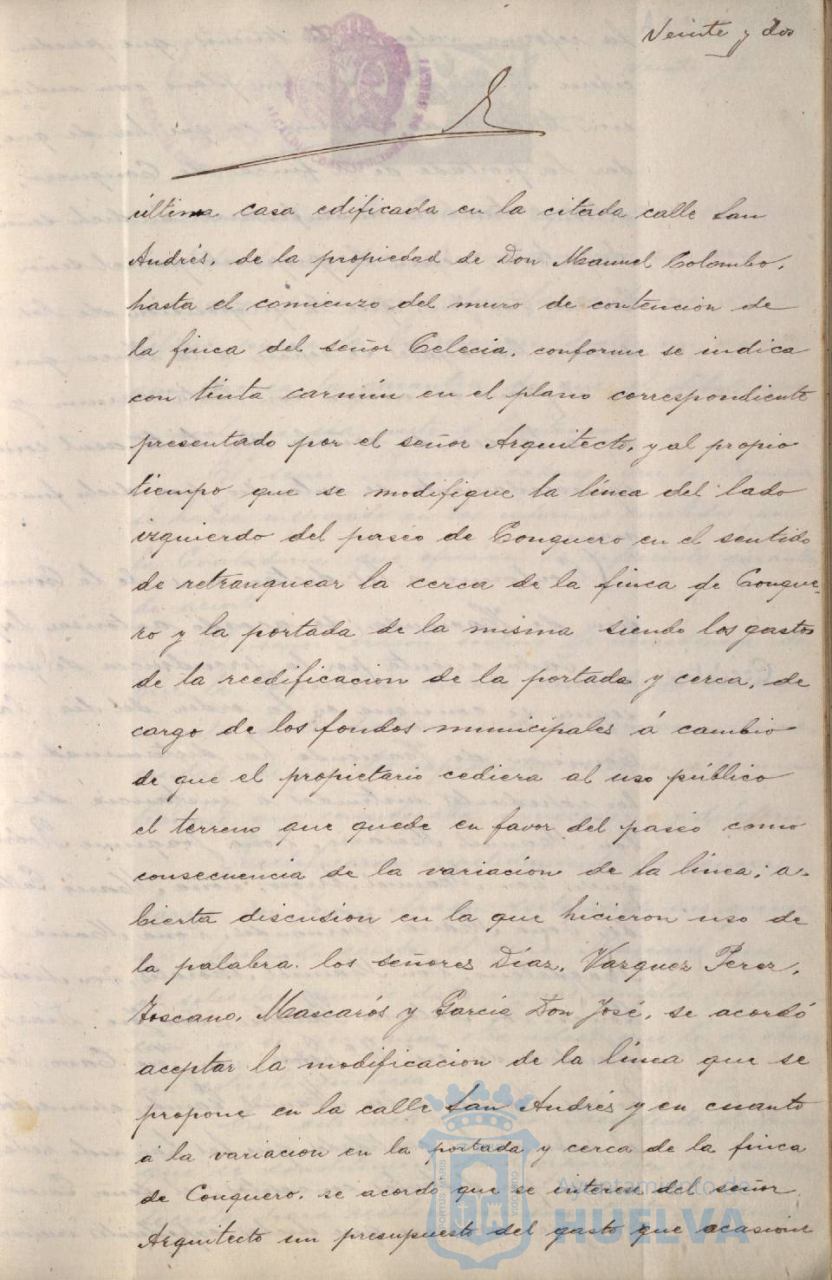 Veinte y dos
última casa edificada en la citada calle San
Andrés, de la propiedad de Don Manuel Colombo,
hasta el comienzo del muro de contención de
la finca del señor Celecia, conforme se indica
con tinta carmín en el plano correspondiente
presentado por el señor Arquitecto, y al propio
tiempo que se modifique la línea del lado
izquierdo del paseo de Conquero en el sentido
de retranquear la cerca de la finca de Conque-
ro y la portada de la misma siendo los gastos
de la reedificacion de la portada y cerca, de
cargo de los fondos municipales á cambio
de que el propietario cediera al uso público
el terreno que quede en favor del paseo como
consecuencia de la variacion de la línea; a-
bierta discusion en la que hicieron uso de
la palabra los señores Díaz, Vazquez Perez,
Toscano, Mascarós y García Don José, se acordó
aceptar la modificacion de la línea que se
propone en la calle San Andrés y en cuanto
á la variacion en la portada y cerca de la finca
de Conquero, se acordo que se interese del señor
Arquitecto un presupuesto del gasto que ocasione
Ayuntamiento de
HUELVA